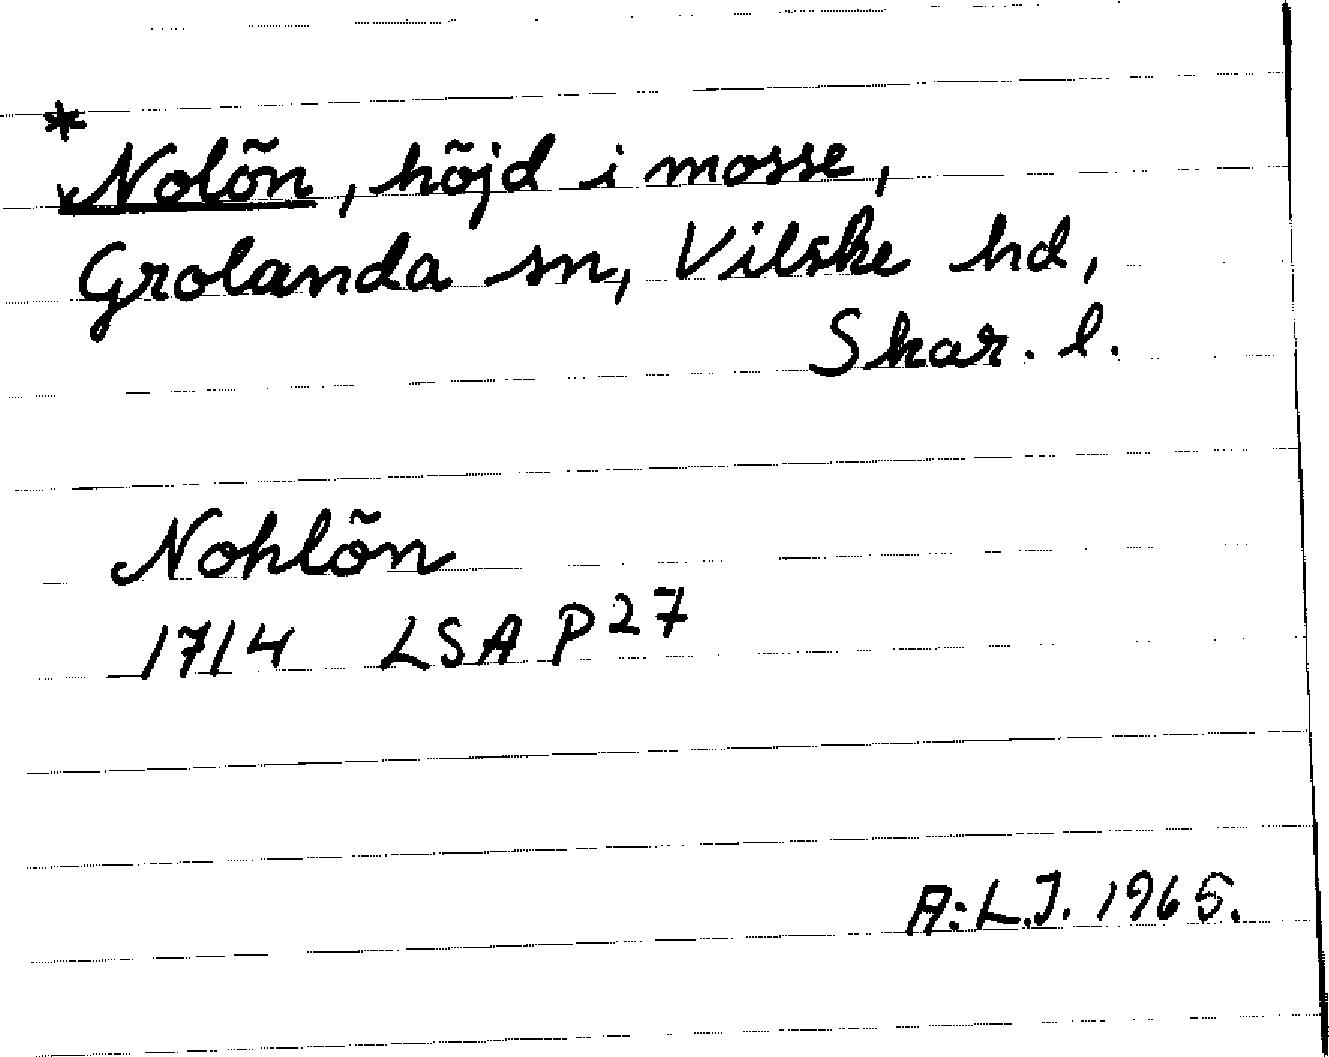 *
Nolön, höjd i mosse,
Grolanda sn, Vilske hd,
Skar. l.
Nohlön
1714 LSA P27
A:L.J. 1965.